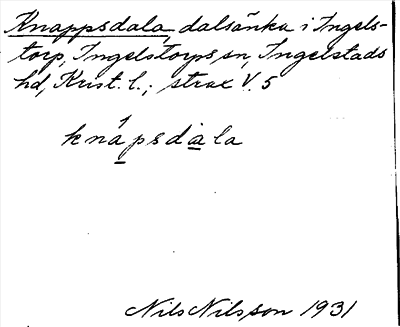 Knappsdala, dalsänka i Ingels-
torp, Ingelstorps sn, Ingelstads
hd, Krist. l.; strax V. 5
knápsdala
Nils Nilsson 1931